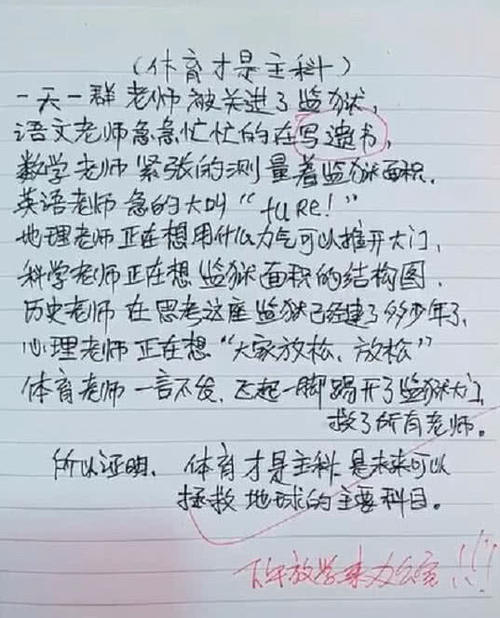 (体育才是主科)
一天一群老师被关进了监狱,
语文老师急急忙忙的在写遗书,
数学老师紧张的测量着监狱面积.
英语老师急的大叫“fure!”
地理老师正在想用什么力气可以推开大门,
科学老师正在想监狱面积的结构图.
历史老师在思考这座监狱已经建了多少年了,
心理老师正在想“大家放松、放松”
体育老师一言不发,飞起一脚踢开了监狱大门,
救了所有老师。
所以证明,体育才是主科是未来可以
拯救地球的主要科目。
下午放学来办公室!!!